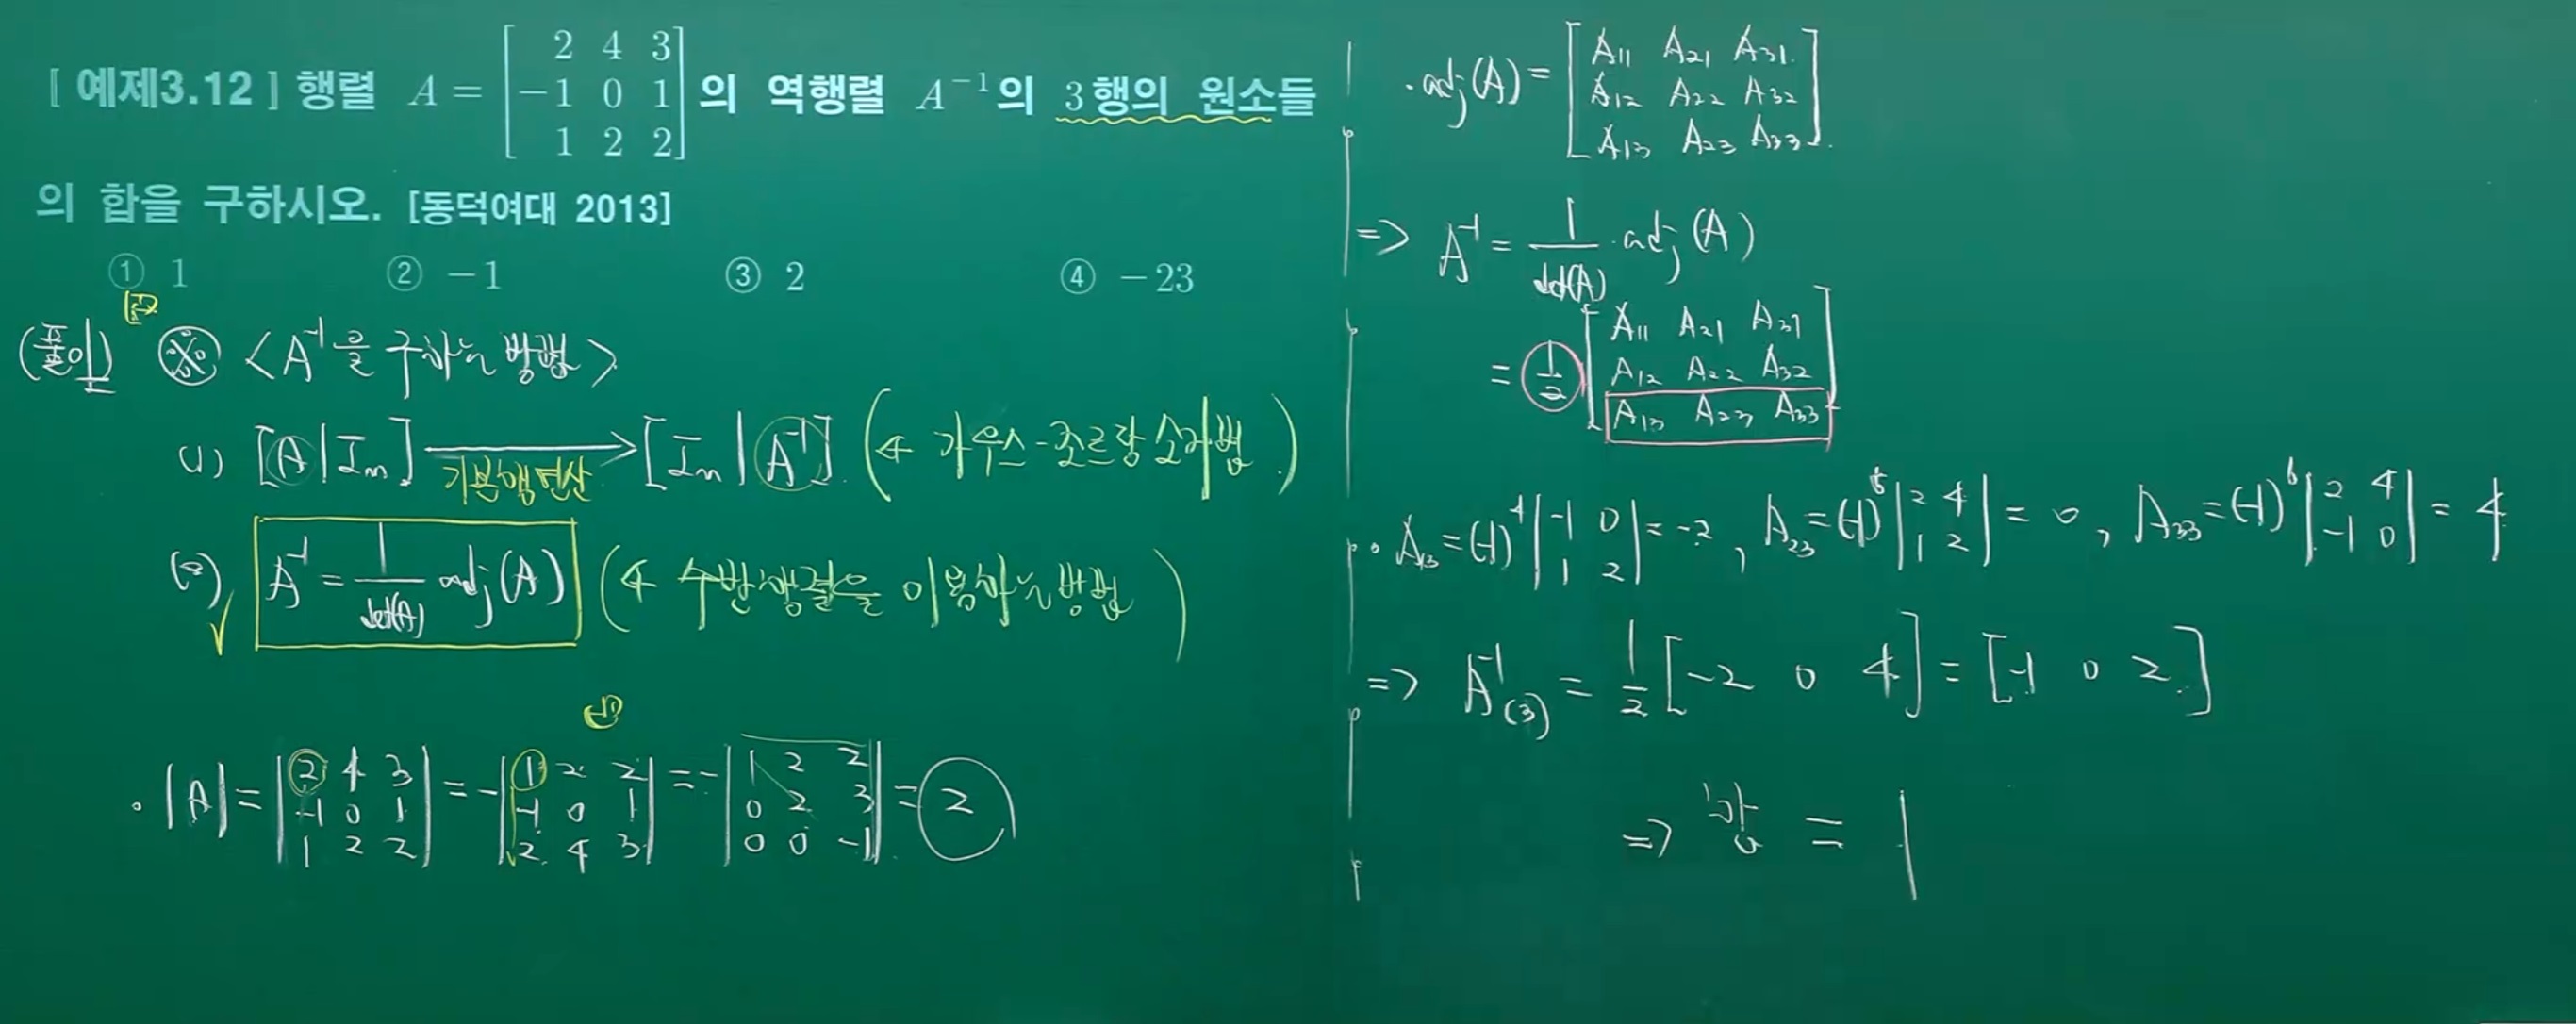 [ 예제3.12 ] 행렬 A = [ 2 4 3 ; −1 0 1 ; 1 2 2 ] 의 역행렬 A⁻¹의 3행의 원소들
의 합을 구하시오. [동덕여대 2013]
① 1 ② −1 ③ 2 ④ −23
(풀이) ※ <A⁻¹을 구하는 방법>
(1) [A | Iₙ] → [Iₙ | A⁻¹] (← 가우스-조르당 소거법)
기본행연산
(2) A⁻¹ = 1/det(A) adj(A) (← 수반행렬을 이용하는 방법)
· |A| = | 2 4 3 ; -1 0 1 ; 1 2 2 | = - | 1 2 2 ; -1 0 1 ; 2 4 3 | = - | 1 2 2 ; 0 2 3 ; 0 0 -1 | = 2
· adj(A) = [ A₁₁ A₂₁ A₃₁ ; A₁₂ A₂₂ A₃₂ ; A₁₃ A₂₃ A₃₃ ]
=> A⁻¹ = 1/det(A) · adj(A)
= 1/2 [ A₁₁ A₂₁ A₃₁ ; A₁₂ A₂₂ A₃₂ ; A₁₃ A₂₃ A₃₃ ]
· A₁₃ = (-1)⁴ | -1 0 ; 1 2 | = -2 , A₂₃ = (-1)⁵ | 2 4 ; 1 2 | = 0 , A₃₃ = (-1)⁶ | 2 4 ; -1 0 | = 4
=> A⁻¹₍₃₎ = 1/2 [ -2 0 4 ] = [ -1 0 2 ]
=> 합 = 1